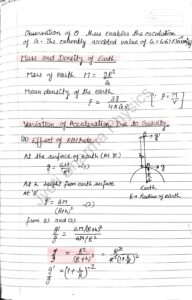 Observation of θ, thus enables the calculation
of G. The currently accepted value of G is 6.67×
Mass and Density of Earth
Mass of earth M = gR²/G
Mean density of the earth
ρ = 3g/4πGR [∵ ρ = M/V]
Variation of Acceleration Due to Gravity
(a) Effect of Altitude
At the surface of earth (At 'A')
g = GM/R² -(1)
At h height from earth surface
At 'B'
g' = GM/(R+h)² -(2)
Earth
R → Radius of earth
from 1) and (2)
g'/g = GM/(R+h)² / GM/R²
g'/g = R²/(R+h)² = R²/R²(1+h/R)²
g'/g = (1+h/R)⁻²